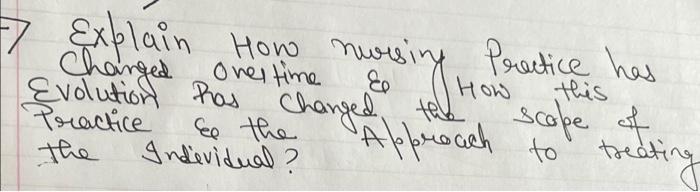 → Explain How nursing Practice has
Changed Overtime & How this
Evolution has changed the scope of
Practice & the Approach to treating
the Individual?